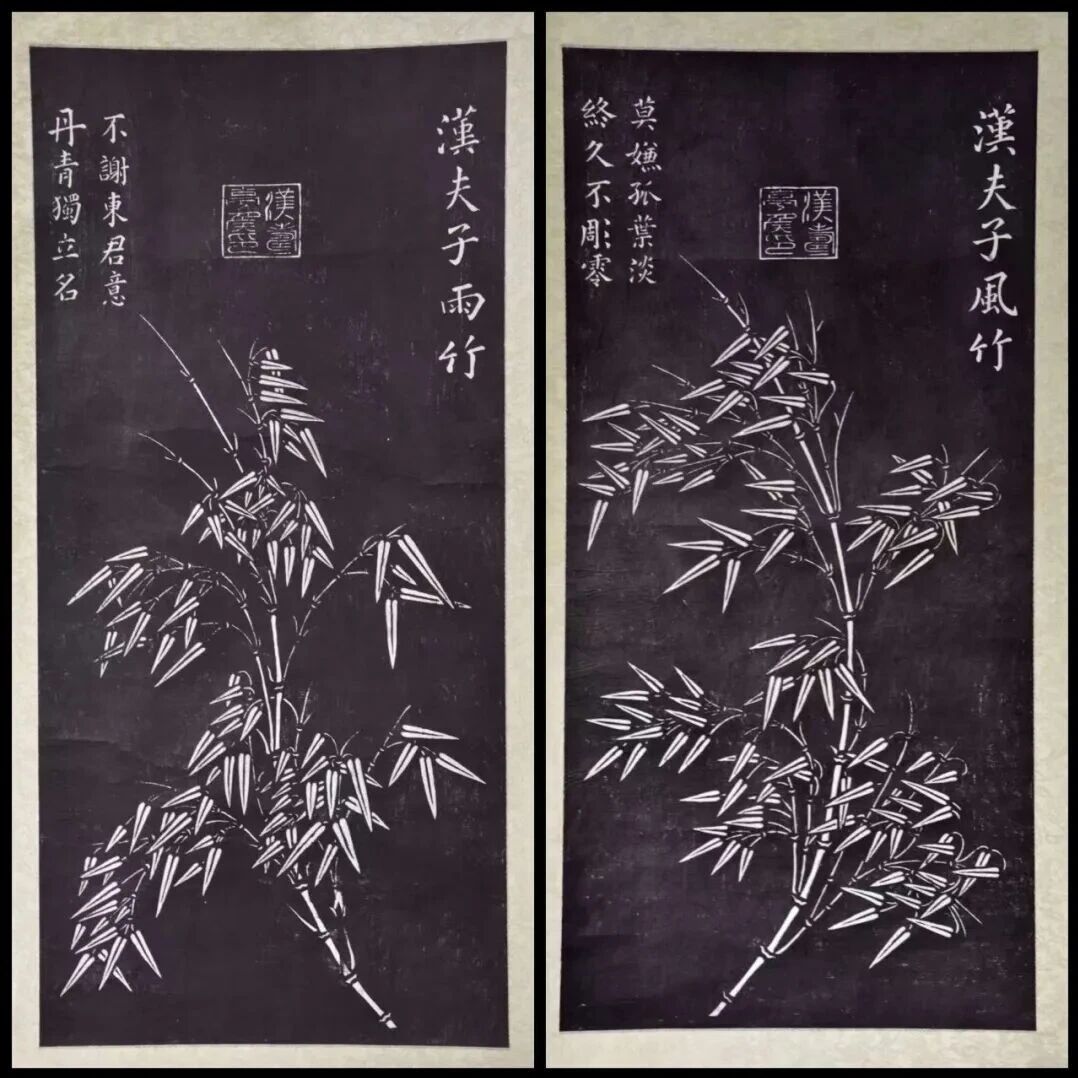 漢夫子風竹
漢壽
亭侯
莫嫌孤葉淡
終久不彫零
漢夫子雨竹
漢壽
亭侯
不謝東君意
丹青獨立名